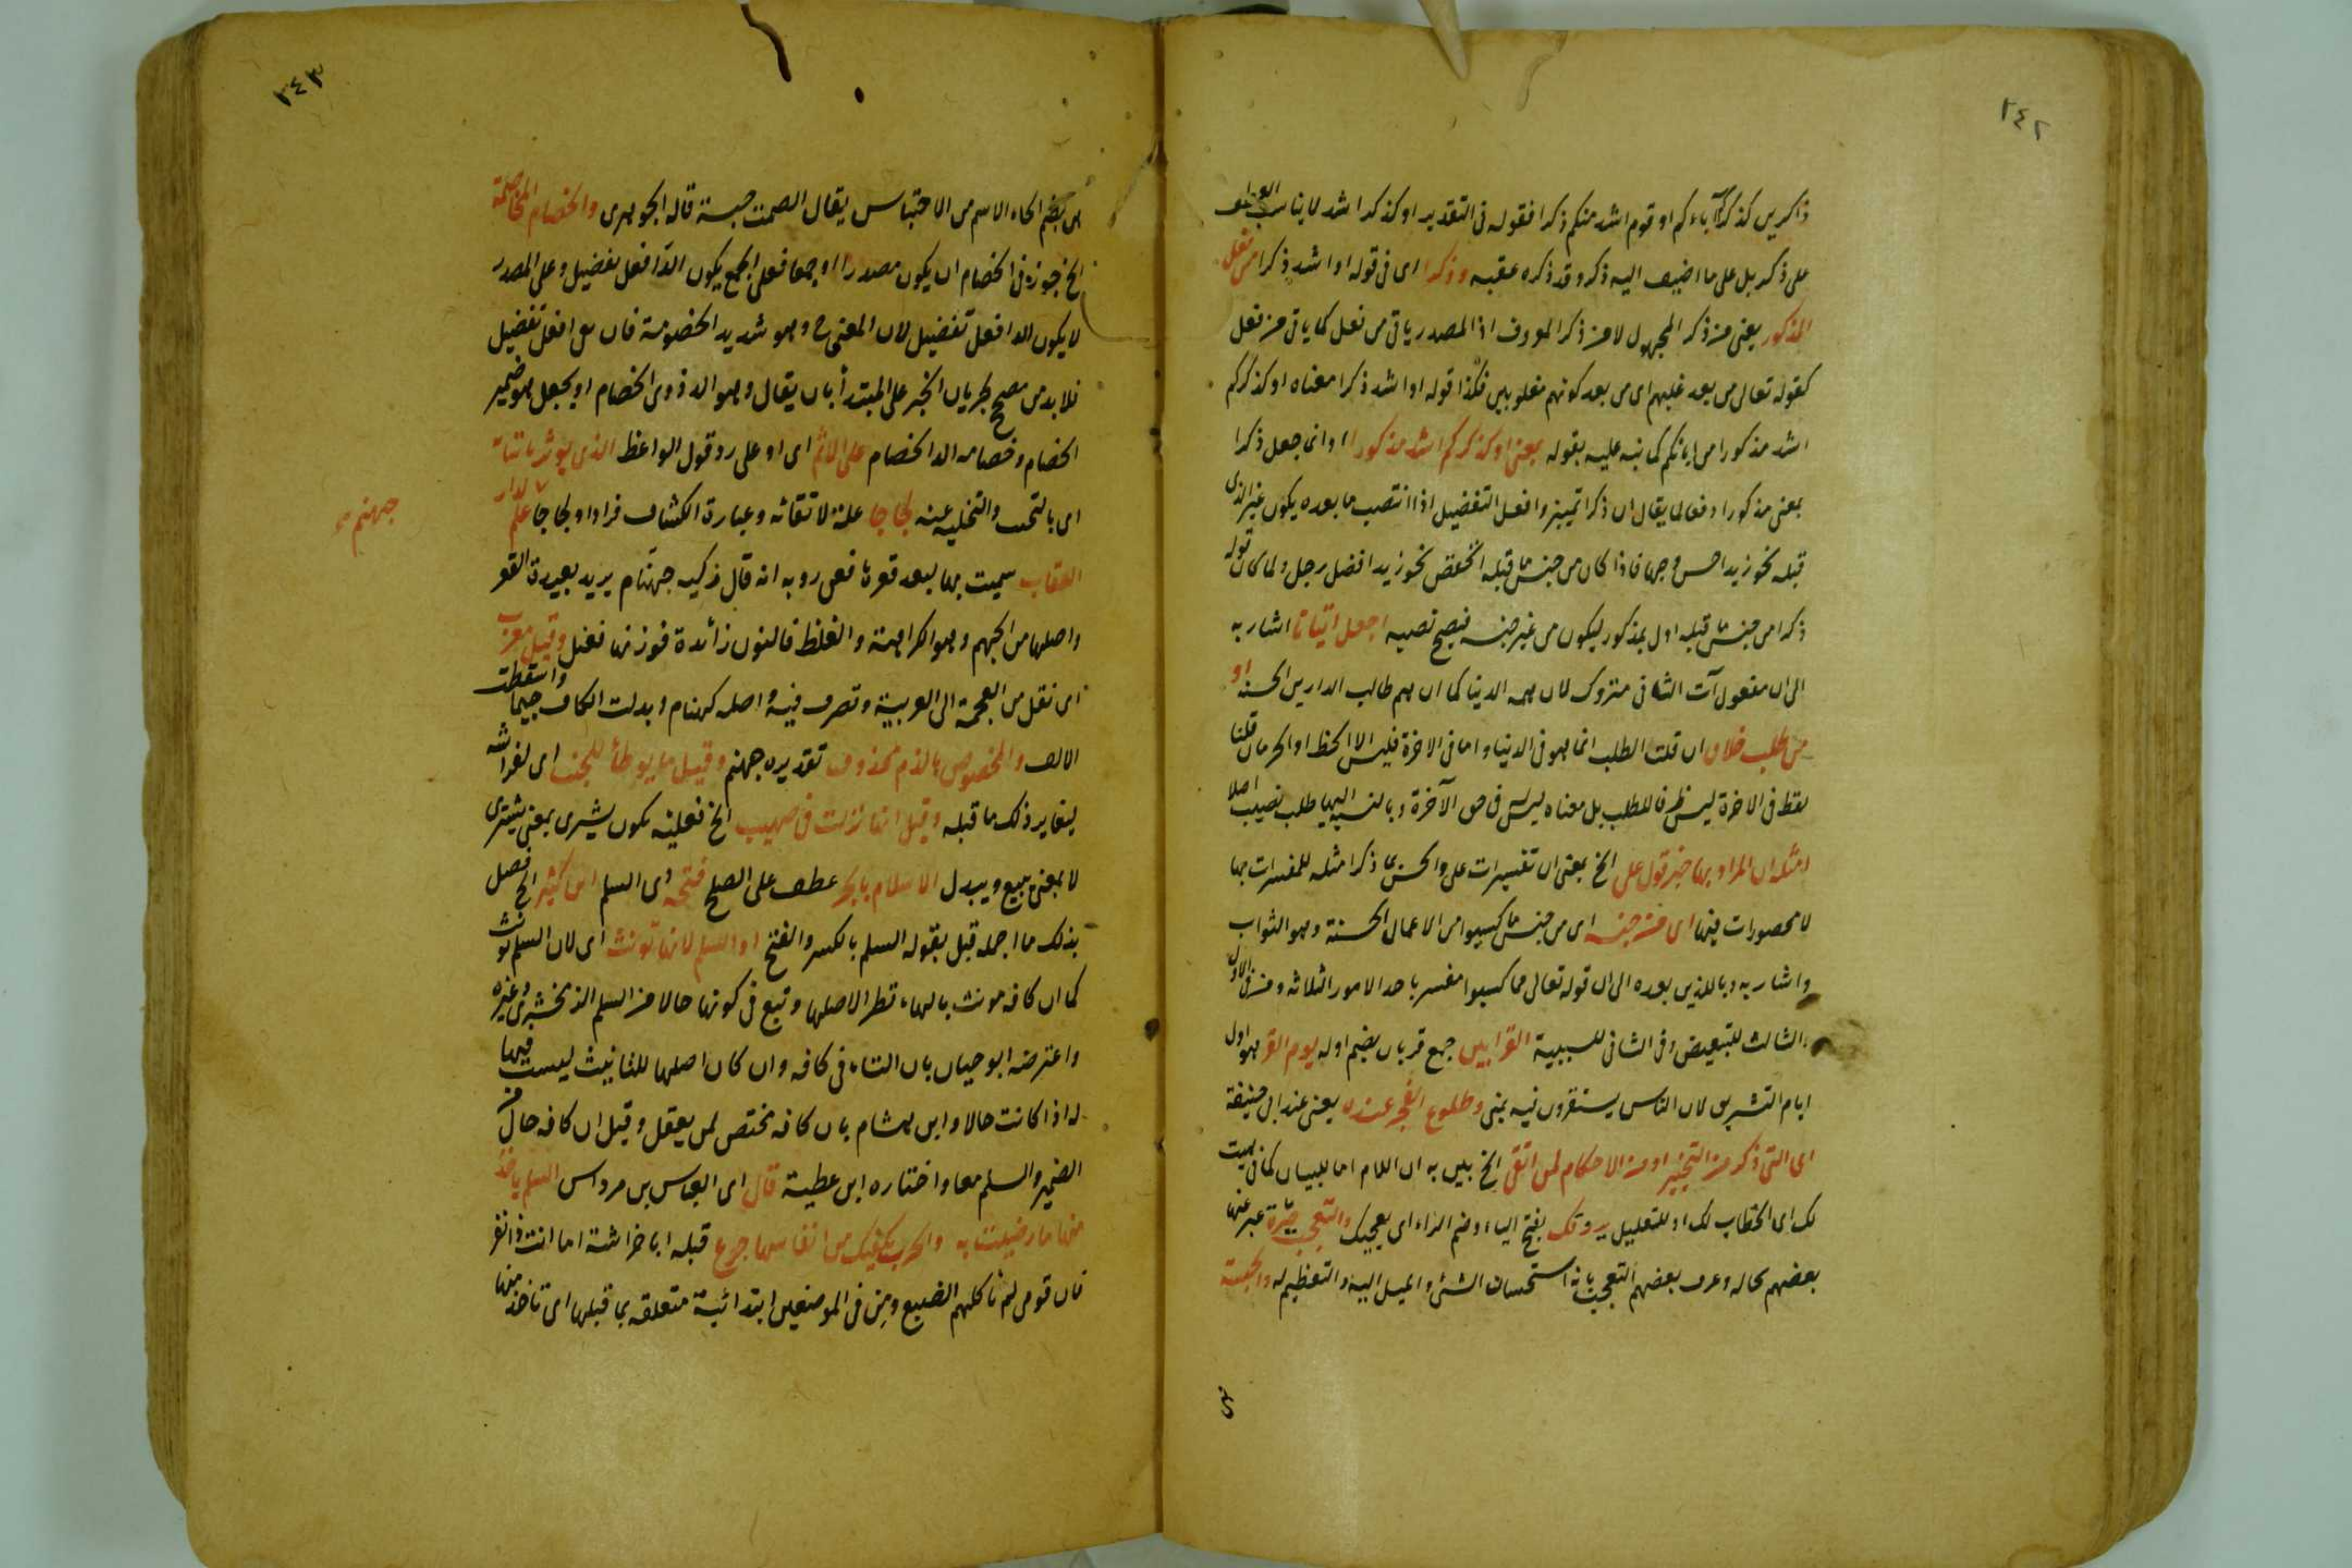 ٢٤٢
ذاكرين كذكركم آباءكم او قوم اشد منكم ذكرا فقوله فى التقدير او كذكر اشد لا يناسب العطف
على ذكر بل على ما اضيف اليه ذكر وقد ذكره عقبه وذكرا اى فى قوله او اشد ذكرا من فعل
المذكور يعنى من ذكر المجهول لا من ذكر المعروف اذ المصدر ياتى من فعل كما ياتى من فعل
كقوله تعالى من بعد غلبهم اى من بعد كونهم مغلوبين فكذا قوله او اشد ذكرا معناه او كذكركم
اشد مذكورا من ابائكم كما نبه عليه بقوله بمعنى او كذكركم اشد مذكورا وانما جعل ذكرا
بمعنى مذكورا دفعا لما يقال ان ذكرا تمييز وافعل التفضيل اذا انتصب ما بعده يكون غير الذى
قبله نحو زيد احسن وجها فاذا كان من جنس ما قبله انخفض نحو زيد افضل رجل ولما كان قوله
ذكرا من جنس ما قبله اول بمذكور ليكون من غير جنسه فيصح نصبه اجعل ايتانا اشار به
الى ان مفعول آت الثانى متروك لان همه الدنيا كما ان هم طالب الدارين الحسنة او
من طلب خلاق ان قلت الطلب انما هو فى الدنيا واما فى الاخرة فليس الا الحظ او الحرمان قلنا
لفظ فى الاخرة ليس ظرفا للطلب بل معناه ليس فى حق الآخرة وبالنسبة اليها طلب نصيب اصلا
امثله ان المراد بها خبر قول على الخ بمعنى ان تفسيرات على والحسن مما ذكر امثله للمفسرات بها
لا محصورات فيها اى من جنسه اى من جنس ما كسبوا من الاعمال الحسنة وهو الثواب
واشار به وبالذين بعده الى ان قوله تعالى مما كسبوا مفسر باحد الامور الثلاثه ومن فى الاول
والثالث للتبعيض وفى الثانى للسببية القرابين جمع قربان بضم اوله يوم القر هو اول
ايام التشريق لان الناس يستقرون فيه بمنى وطلوع الفجر عنده يعنى عند ابى حنيفة
اى التى ذكر من التخيير او من الاحكام لمن اتقى الخ بين به ان اللام اما للبيان كما فى هيت
لك اى الخطاب لك او للتعليل يروقك بفتح الياء وضم الراء اى يعجبك والتعجب حيرة عبر عنها
بعضهم بحاله وعرف بعضهم التعجب بانه استحسان الشئ والميل اليه والتعظيم له والحبسة
٢٤٣
هى بضم الحاء الاسم من الاحتباس يقال الصمت حبسة قاله الجوهرى والخصام المخاصمة
الخ جوزه فى الخصام ان يكون مصدرا او جمعا فعلى الجمع يكون الد افعل تفضيل وعلى المصدر
لا يكون الد افعل تفضيل لان المعنى ح وهو شديد الخصومة فان على افعل تفضيل
فلا بد من مصحح لجريان الخبر على المبتدأ بان يقال وهو الد ذوى الخصام او يجعل هو ضمير
الخصام وخصامه الد الخصام على الاثم اى او على رد قول الواعظ الذى يؤثر باتيانه
اى بالتحت والتخليه عنه لجاجا علة لاتقائه وعبارة الكشاف ضرارا ولجاجا علم لدار
العقاب سميت بها لبعد قعرها فعن روبه انه قال ركية جهنام يريد بعيدة القعر
جهنم
واصلها من الجهم وهو الكراهة والغلظ فالنون زائدة فوزنها فعنل وقيل معرب
اى نقل من العجمة الى العربية وتصرف فيه واصله كهنام وبدلت الكاف جيما واسقطت
الالف والمخصوص بالذم محذوف تقديره جهنم وقيل ما يوطأ للجنب اى لفراشه
ليغاير ذلك ما قبله وقيل انها نزلت فى صهيب الخ فعلينه يكون يشرى بمعنى يشترى
لا بمعنى يبيع ويبدل الاسلام بالجر عطف على الصلح فتحه اى السلم ابن كثير الخ فصل
بذلك ما اجمله قبل بقوله السلم بالكسر والفتح او السلم لانها تونث اى لان السلم تونث
كما ان كافه مونث بالهاء نظرا لاصلها وتبع فى كونها حالا من السلم الزمخشرى وغيره
واعترضه ابو حيان بان التاء فى كافه وان كان اصلها للتانيث ليست فيها
له اذا كانت حالا وابن هشام بان كافه تختص لمن يعقل وقيل ان كافه حال من
الضمير والسلم معا واختاره ابن عطية قال اى العباس بن مرداس السلم ياخذ
منها ما رضيت به والحرب يكفيك من انفاسها جرع قبله ابا خراشة اما انت ذا نفر
فان قومى لم تاكلهم الضبع ومن فى الموضعين ابتدائية متعلقه بما قبلها اى تاخذ منها